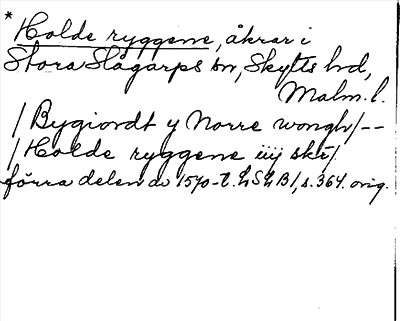 * Holde ryggene, åkrar i
Stora Slågarps sn, Skytts hd,
Malm. l.
/ Bygiordt y Norre wongh / --
/ Holde ryggene iiij sk /
förra delen av 1570-t. LSLB 1, s. 364. orig.